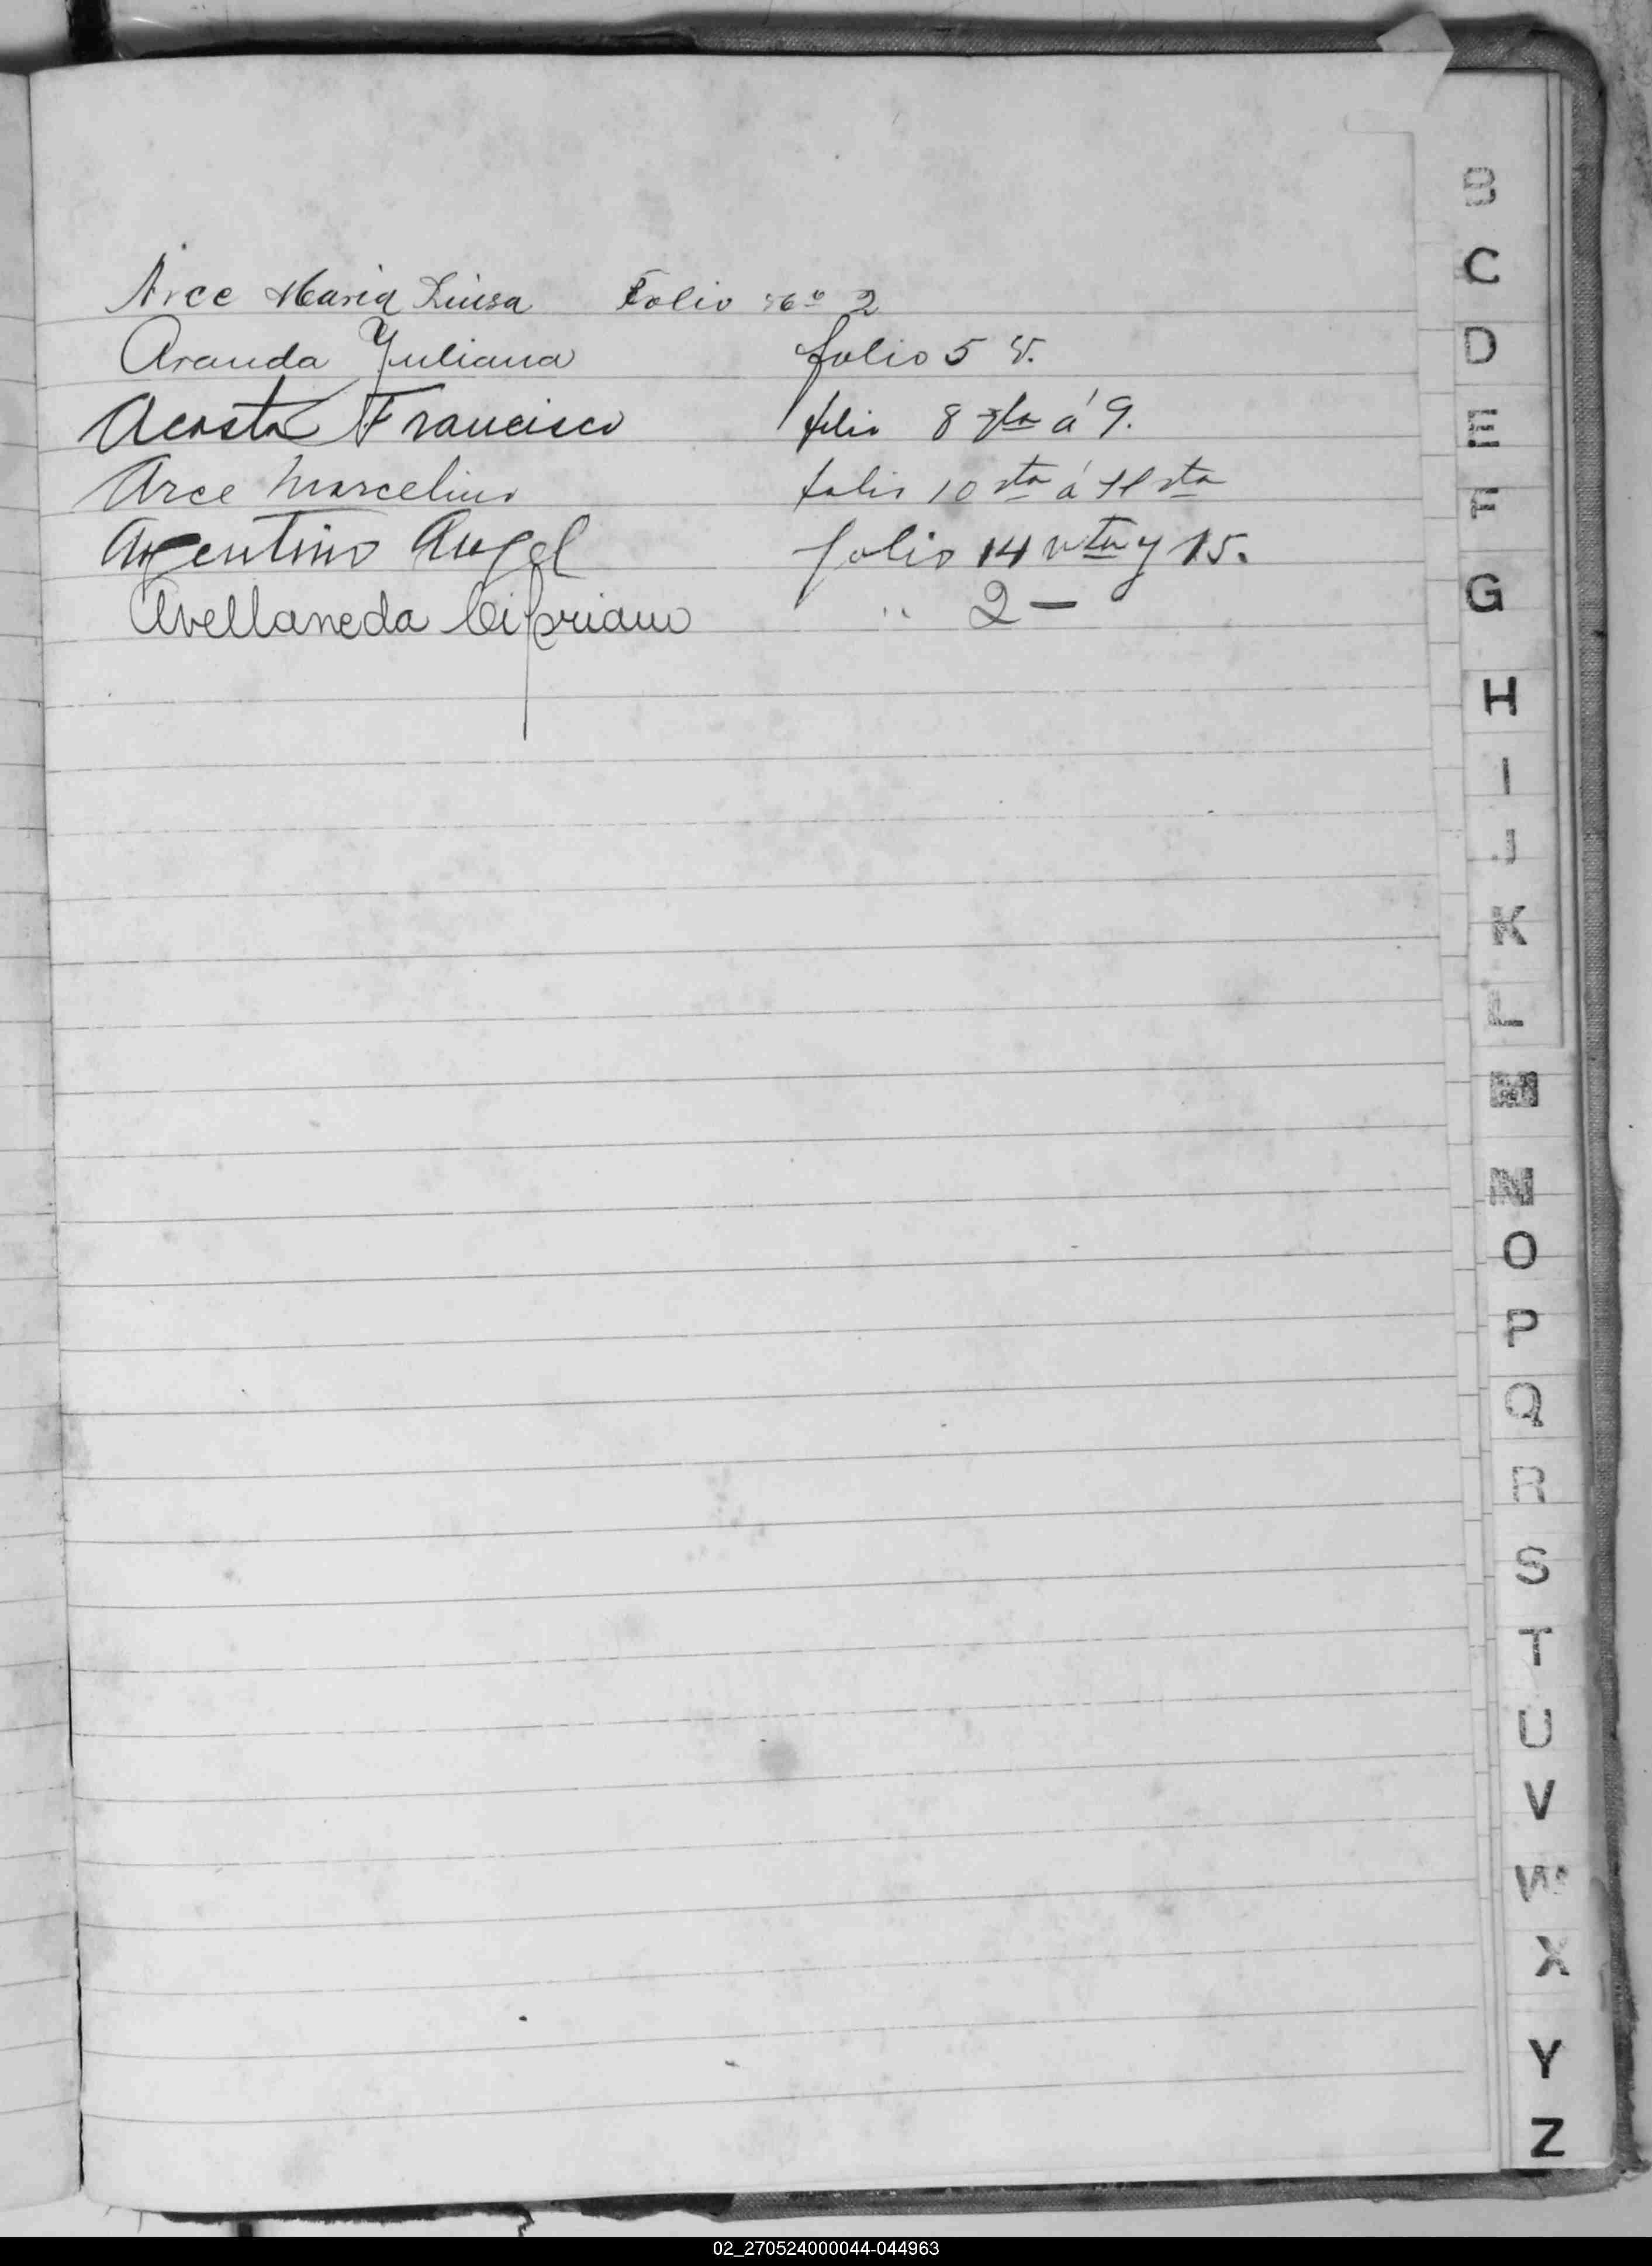 Arce Maria Luisa Folio Nº 2
Aranda Juliana folio 5 v.
Acosta Francisco folio 8 vta á 9.
Arce Marcelino folio 10 vta á 11 vta
Argentino Angel folio 14 vta y 15.
Avellaneda Cipriano " 2 -
B
C
D
E
F
G
H
I
J
K
L
M
N
O
P
Q
R
S
T
U
V
W
X
Y
Z
02_270524000044-044963